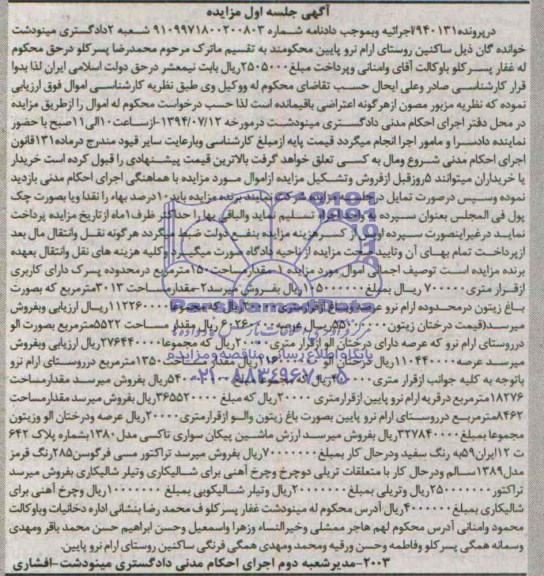 آگهی جلسه اول مزایده
درپرونده۷۹۴۰۱۳۱اجرائیه وبموجب دادنامه شماره ۹۱۰۹۹۷۱۸۰۰۲۰۰۸۰۳ شعبه ۲دادگستری مینودشت
خوانده گان ذیل ساکنین روستای ارام نرو پایین محکومند به تقسیم ماترک مرحوم محمدرضا پسرکلو درحق محکوم
له غفار پسرکلو باوکالت آقای وامنانی وپرداخت مبلغ۲۵۰۵۰۰۰ریال بابت نیمعشر درحق دولت اسلامی ایران لذا بدوا
قرار کارشناسی صادر وعلی ایحال حسب تقاضای محکوم له ووکیل وی طبق نظریه کارشناسی اموال فوق ارزیابی
نموده که نظریه مزبور مصون ازهرگونه اعتراضی باقیمانده است لذا حسب درخواست محکوم له اموال را ازطریق مزایده
در محل دفتر اجرای احکام مدنی دادگستری مینودشت درمورخه ۱۳۹۴/۰۷/۱۲-ازساعت۱۰الی۱۱صبح با حضور
نماینده دادسرا و مامور اجرا انجام میگردد قیمت پایه ازمبلغ کارشناسی وبارعایت سایر قیود مندرج درماده۱۳۱قانون
اجرای احکام مدنی شروع ومال به کسی تعلق خواهد گرفت بالاترین قیمت پیشنهادی را قبول کرده است خریدار
یا خریداران میتوانند ۵روزقبل ازفروش وتشکیل مزایده ازاموال مورد مزایده با هماهنگی اجرای احکام مدنی بازدید
نموده وسپس درصورت تمایل در جلسه مزایده شرکت نمایند برنده مزایده باید۱۰درصد بهاء را نقدا ویا بصورت چک
پول فی المجلس بعنوان سپرده به تسلیم نماید والباقی بها را حداکثر ظرف۱ماه ازتاریخ مزایده پرداخت
نماید درغیراینصورت سپرده اولیه از کسر هزینه مزایده بنفع دولت ضبط میگردد هرگونه نقل وانتقال مال بعد
ازپرداخت تمام بهای آن وتایید صحت مزایده ازناحیه دادگاه صورت میگیرد وکلیه هزینه های نقل وانتقال بعهده
برنده مزایده است توصیف اجمالی اموال مورد مزایده ۱-مقدار مساحت ۱۵۰مترمربع درمحدوده پسرک دارای کاربری
ازقرار متری۷۰۰۰۰۰ ریال بمبلغ ۱۰۵۰۰۰۰۰۰ریال بفروش میرسد۲-مقدار مساحت ۳۰۱۳مترمربع که بصورت
باغ زیتون درمحدوده ارام نرو ریال که مجموعا ۱۱۲۲۶۰۰۰۰ریال ارزیابی وبفروش
میرسد(قیمت درختان زیتون ریال عرصه ریال مقدار مساحت ۵۵۲۲مترمربع بصورت الو
درروستای ارام نرو که عرصه دارای درختان الو ازقرار متری ۲۰۰۰۰ریال که مجموعا۲۷۶۴۴۰۰۰۰ریال ارزیابی وبفروش
میرسد عرصه۱۱۰۴۴۰۰۰۰ریال درختان الو ریال مقدار مساحت ۱۳۵۰مترمربع درروستای ارام نرو
باتوجه به کلیه جوانب ازقرار متری ریال که مجموعا مبلغ ریال بفروش میرسد مقدارمساحت
۱۸۲۷۶مترمربع درقریه ارام نرو پایین ازقرارمتری ۲۰۰۰۰ریال که مبلغ ۳۶۵۵۲۰۰۰۰ریال بفروش میرسد مقدارمساحت
۸۴۶۲مترمربع درروستای ارام نرو پایین بصورت باغ زیتون والو ازقرارمتری۲۰۰۰۰ریال عرصه ودرختان الو وزیتون
مجموعا بمبلغ۳۲۷۸۴۰۰۰۰ریال بفروش میرسد ارزش ماشین پیکان سواری تاکسی مدل۱۳۸۰بشماره پلاک ۶۴۲
ت ۱۲ایران۵۹به رنگ سفید ودرحال کار بمبلغ۷۰۰۰۰۰۰۰ریال بفروش میرسد تراکتور مسی فرگوسن۲۸۵رنگ قرمز
مدل۱۳۸۹سالم ودرحال کار با متعلقات تریلی دوچرخ وچرخ آهنی برای شالیکاری وتیلر شالیکاری بفروش میرسد
تراکتور۲۵۰۰۰۰۰۰۰ریال وتریلی بمبلغ۲۰۰۰۰۰۰۰ریال وتیلر شالیکوبی بمبلغ ۱۰۰۰۰۰۰۰ریال وچرخ آهنی برای
شالیکاری بمبلغ۴۰۰۰۰۰۰ریال آدرس محکوم له مینودشت غفار پسرکلو ف محمد رضا بنشانی اداره دخانیات وباوکالت
محمود وامنانی آدرس محکوم لهم هاجر ممشلی وخیرالنساء وزهرا واسمعیل وحسن ابراهیم حسن محمد باقر ومهدی
وسمانه همگی پسرکلو وفاطمه وحسن ورقیه ومحمد ومهدی همگی فرنگی ساکنین روستای ارام نرو پایین.
۲۰۰۳-مدیرشعبه دوم اجرای احکام مدنی دادگستری مینودشت-افشاری
پایگاه اطلاع رسانی مناقصه و مزایده
۰۲۱-۸۸۳۴۹۶۷۰-۵